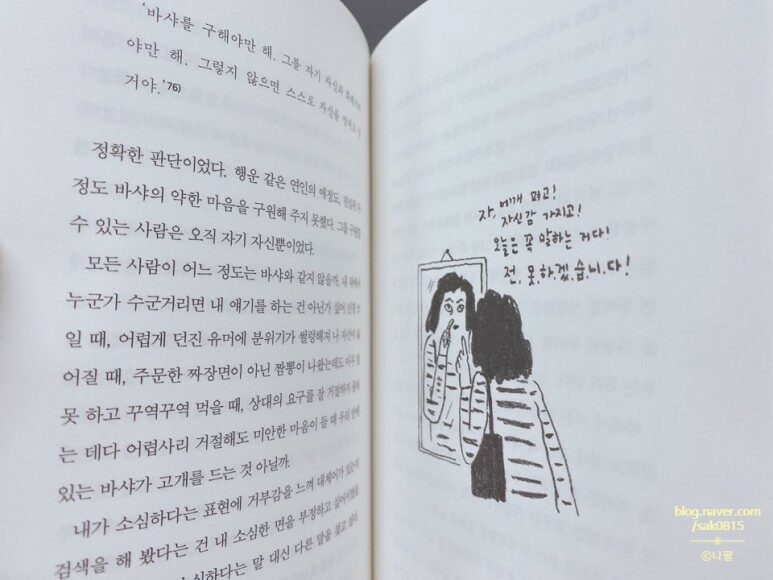 '바샤를 구해야만 해. 그를 자기 자신과
야만 해. 그렇지 않으면 스스로 자신을 망치고 말
거야.'76)
정확한 판단이었다. 행운 같은 연인의 애정도, 진실한 우
정도 바샤의 약한 마음을 구원해 주지 못했다. 그를 구원할
수 있는 사람은 오직 자기 자신뿐이었다.
모든 사람이 어느 정도는 바샤와 같지 않을까. 내 뒤에서
누군가 수군거리면 내 얘기를 하는 건 아닌가 싶어 신경 쓰
일 때, 어렵게 던진 유머에 분위기가 썰렁해져 나 자신이 싫
어질 때, 주문한 짜장면이 아닌 짬뽕이 나왔는데도 아무 말
못 하고 꾸역꾸역 먹을 때, 상대의 요구를 잘 거절하지 못하
는 데다 어렵사리 거절해도 미안한 마음이 들 때 우리 안에
있는 바샤가 고개를 드는 것 아닐까.
내가 소심하다는 표현에 거부감을 느껴 대체어가 있는지
검색을 해 봤다는 건 내 소심한 면을 부정하고 싶어서였을
심하다는 말 대신 다른 말을 찾고 있다
자, 어깨 펴고!
자신감 가지고!
오늘은 꼭 말하는 거다!
전, 못.하.겠.습.니.다!
blog.naver.com
/sak0815
©나팔